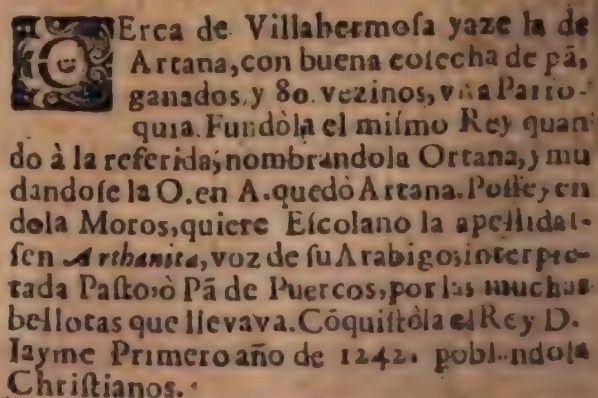 CErca de Villahermoſa yaze la de
Artana, con buena coſecha de pã,
ganados, y 80. vezinos, vna Parro-
quia. Fundòla el miſmo Rey quan-
do à la referida; nombrandola Ortana, y mu
dandoſe la O. en A. quedò Artana. Poſſeyen
dola Moros, quiere Eſcolano la apellidaſ-
ſen Arthanita, voz de ſu Arabigo; interpre-
tada Paſto, ò Pã de Puercos, por las muchas
bellotas que llevava. Cõquiſtòla el Rey D.
Iayme Primero año de 1242. poblandola
Chriſtianos.